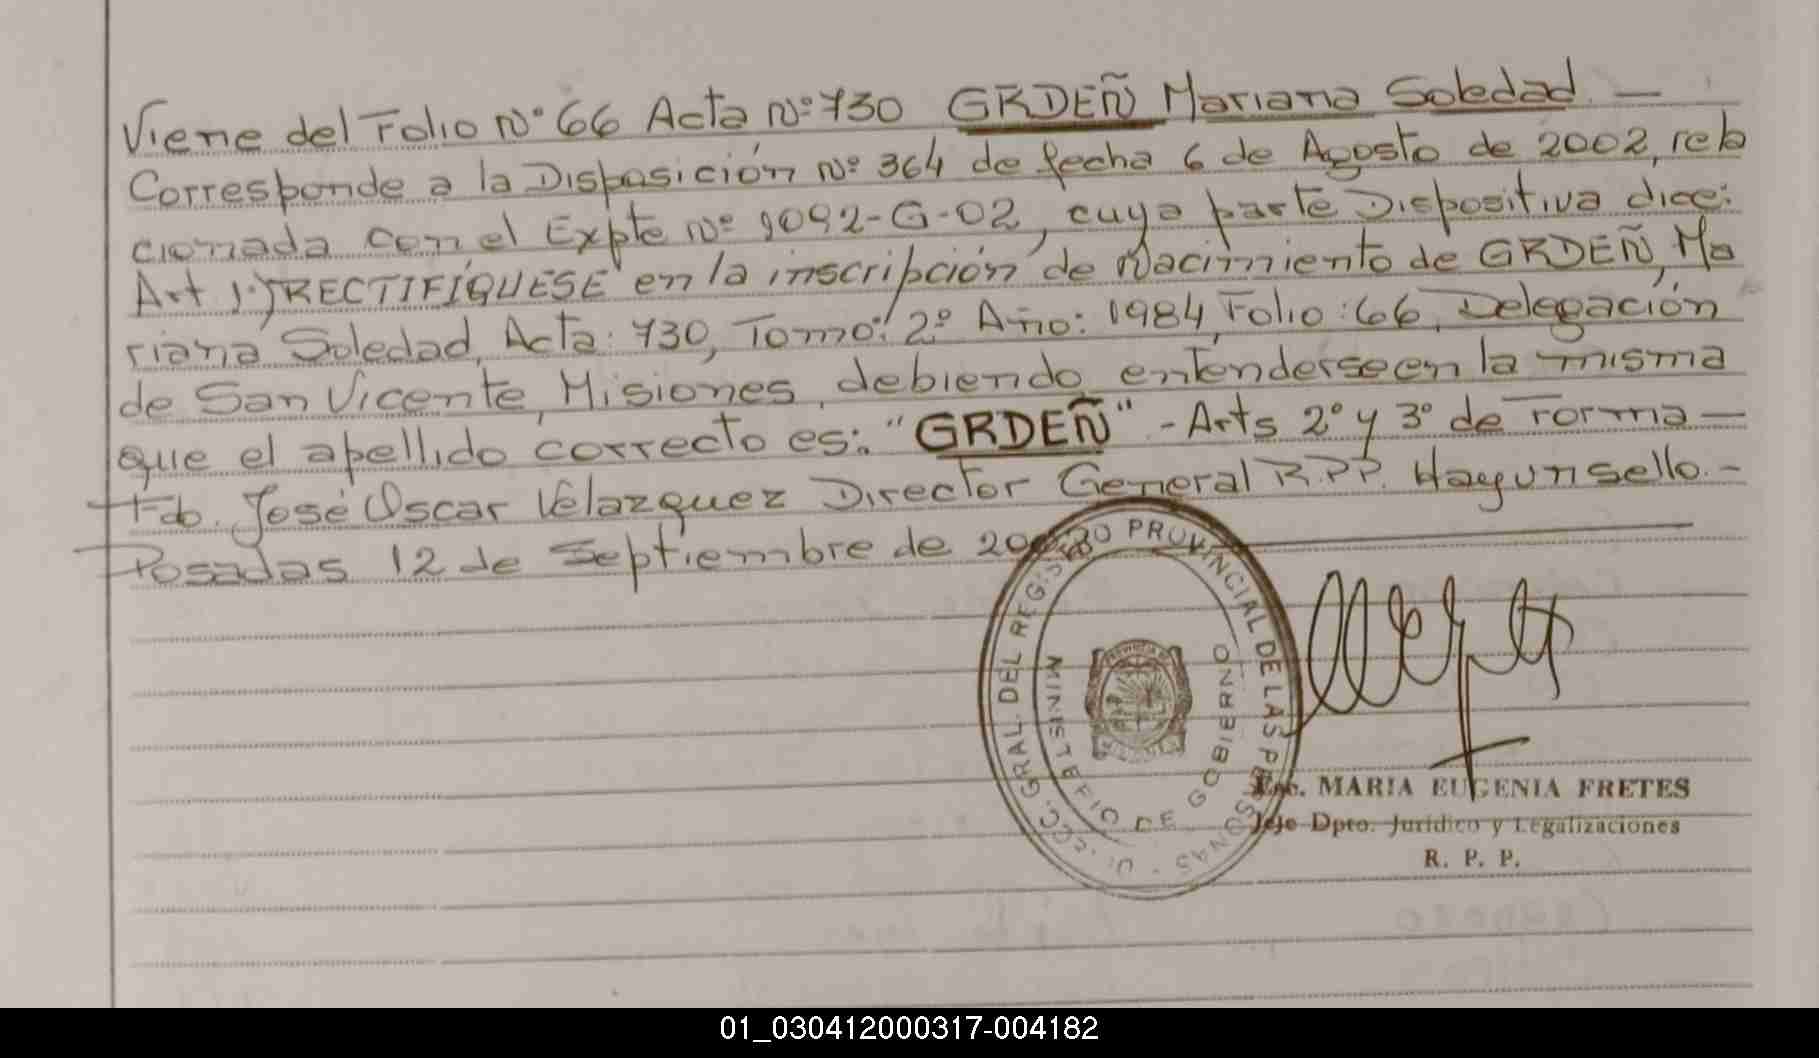 Viene del Folio Nº 66 Acta Nº 730 GRDEÑ Mariana Soledad. —
Corresponde a la Disposición Nº 364 de fecha 6 de Agosto de 2002, rela
cionada con el Expte Nº 9092-G-02, cuya parte Dispositiva dice:
Art 1º) RECTIFÍQUESE en la inscripción de Nacimiento de GRDEÑ, Ma
riana Soledad, Acta: 730, Tomo: 2º Año: 1984, Folio: 66, Delegación
de San Vicente, Misiones, debiendo entenderse en la misma
que el apellido correcto es: "GRDEÑ" - Arts 2º y 3º de Forma —
Fdo. José Oscar Velazquez Director General R.P.P. Hay un sello. -
Posadas 12 de Septiembre de
GRAL. DEL REGISTRO PROVINCIAL DE LAS PERSONAS
MINISTERIO DE GOBIERNO
Esc. MARIA EUGENIA FRETES
Jefe Dpto. Jurídico y Legalizaciones
R. P. P.
01_030412000317-004182